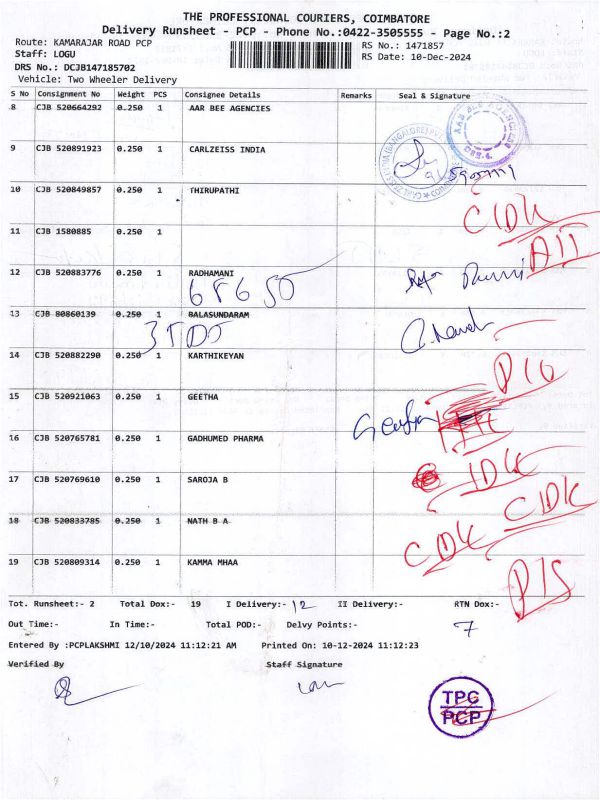 THE PROFESSIONAL COURIERS, COIMBATORE
Delivery Runsheet - PCP - Phone No.:0422-3505555 - Page No.:2
Route: KAMARAJAR ROAD PCP
Staff: LOGU
DRS No.: DCJB147185702
Vehicle: Two Wheeler Delivery
RS No.: 1471857
RS Date: 10-Dec-2024
S No Consignment No Weight PCS Consignee Details Remarks Seal & Signature
8 CJB 520664292 0.250 1 AAR BEE AGENCIES
9 CJB 520891923 0.250 1 CARLZEISS INDIA
10 CJB 520849857 0.250 1 THIRUPATHI
CIDK
11 CJB 1580885 0.250 1
AII
12 CJB 520883776 0.250 1 RADHAMANI
68650
13 CJB 80860139 0.250 1 BALASUNDARAM
14 CJB 520882290 0.250 1 KARTHIKEYAN
15 CJB 520921063 0.250 1 GEETHA
Geetha
16 CJB 520765781 0.250 1 GADHUMED PHARMA
17 CJB 520769610 0.250 1 SAROJA B
IDK
18 CJB 520833785 0.250 1 NATH B A
CIDK
CDK
19 CJB 520809314 0.250 1 KAMMA MHAA
PIS
Tot. Runsheet:- 2 Total Dox:- 19 I Delivery:- 12 II Delivery:- RTN Dox:- 7
Out Time:- In Time:- Total POD:- Delvy Points:-
Entered By :PCPLAKSHMI 12/10/2024 11:12:21 AM Printed On: 10-12-2024 11:12:23
Verified By Staff Signature
TPC
PCP